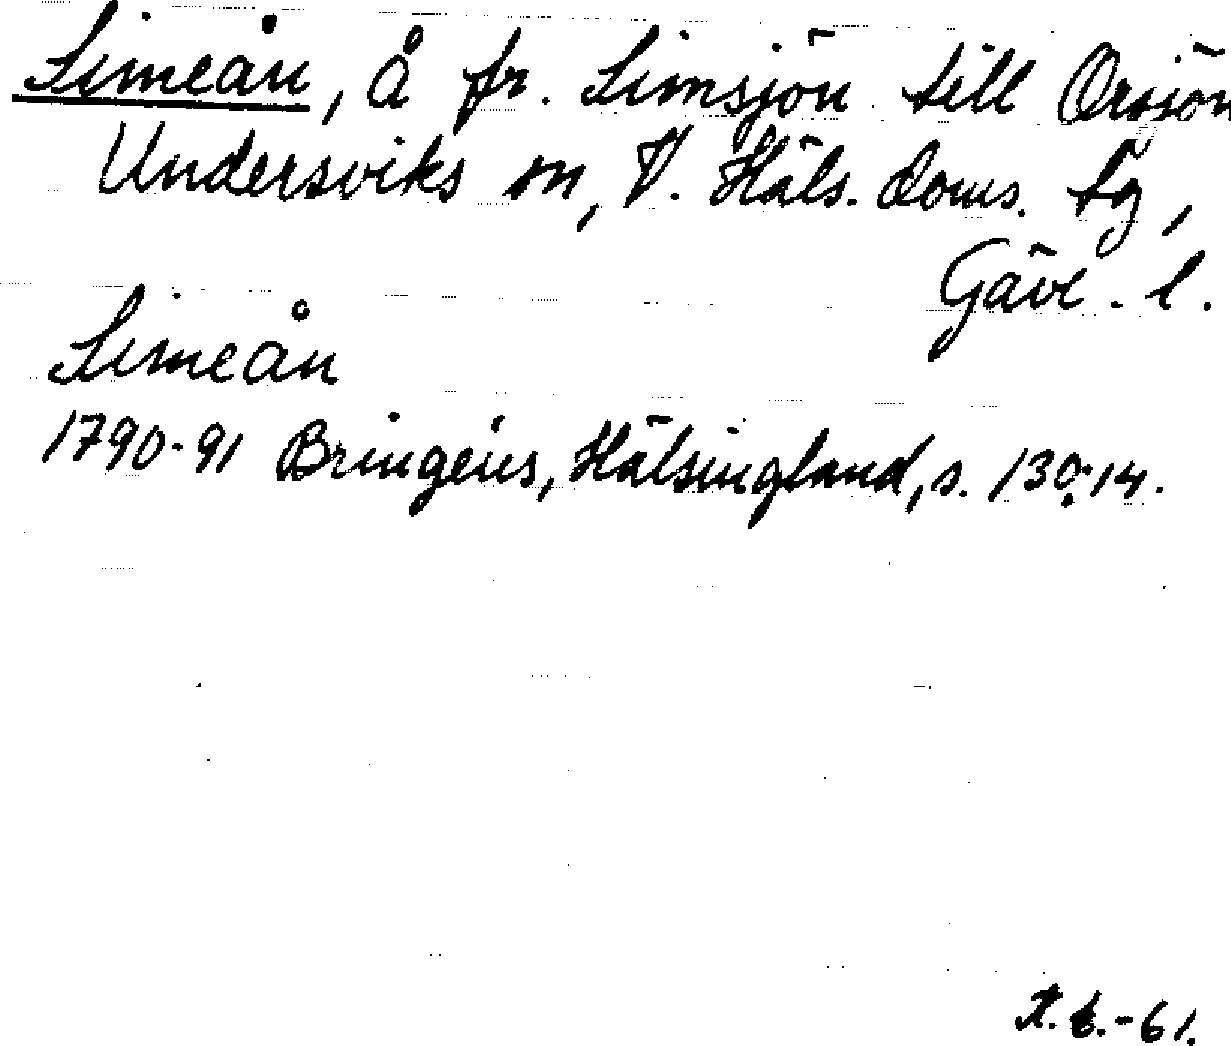 Simeån, å fr. Simsjön till Örsjön
Undersviks sn, V. Häls. doms. tg,
Gävl. l.
Simeån
1790-91 Bringéus, Hälsingland, s. 130:14.
-61.